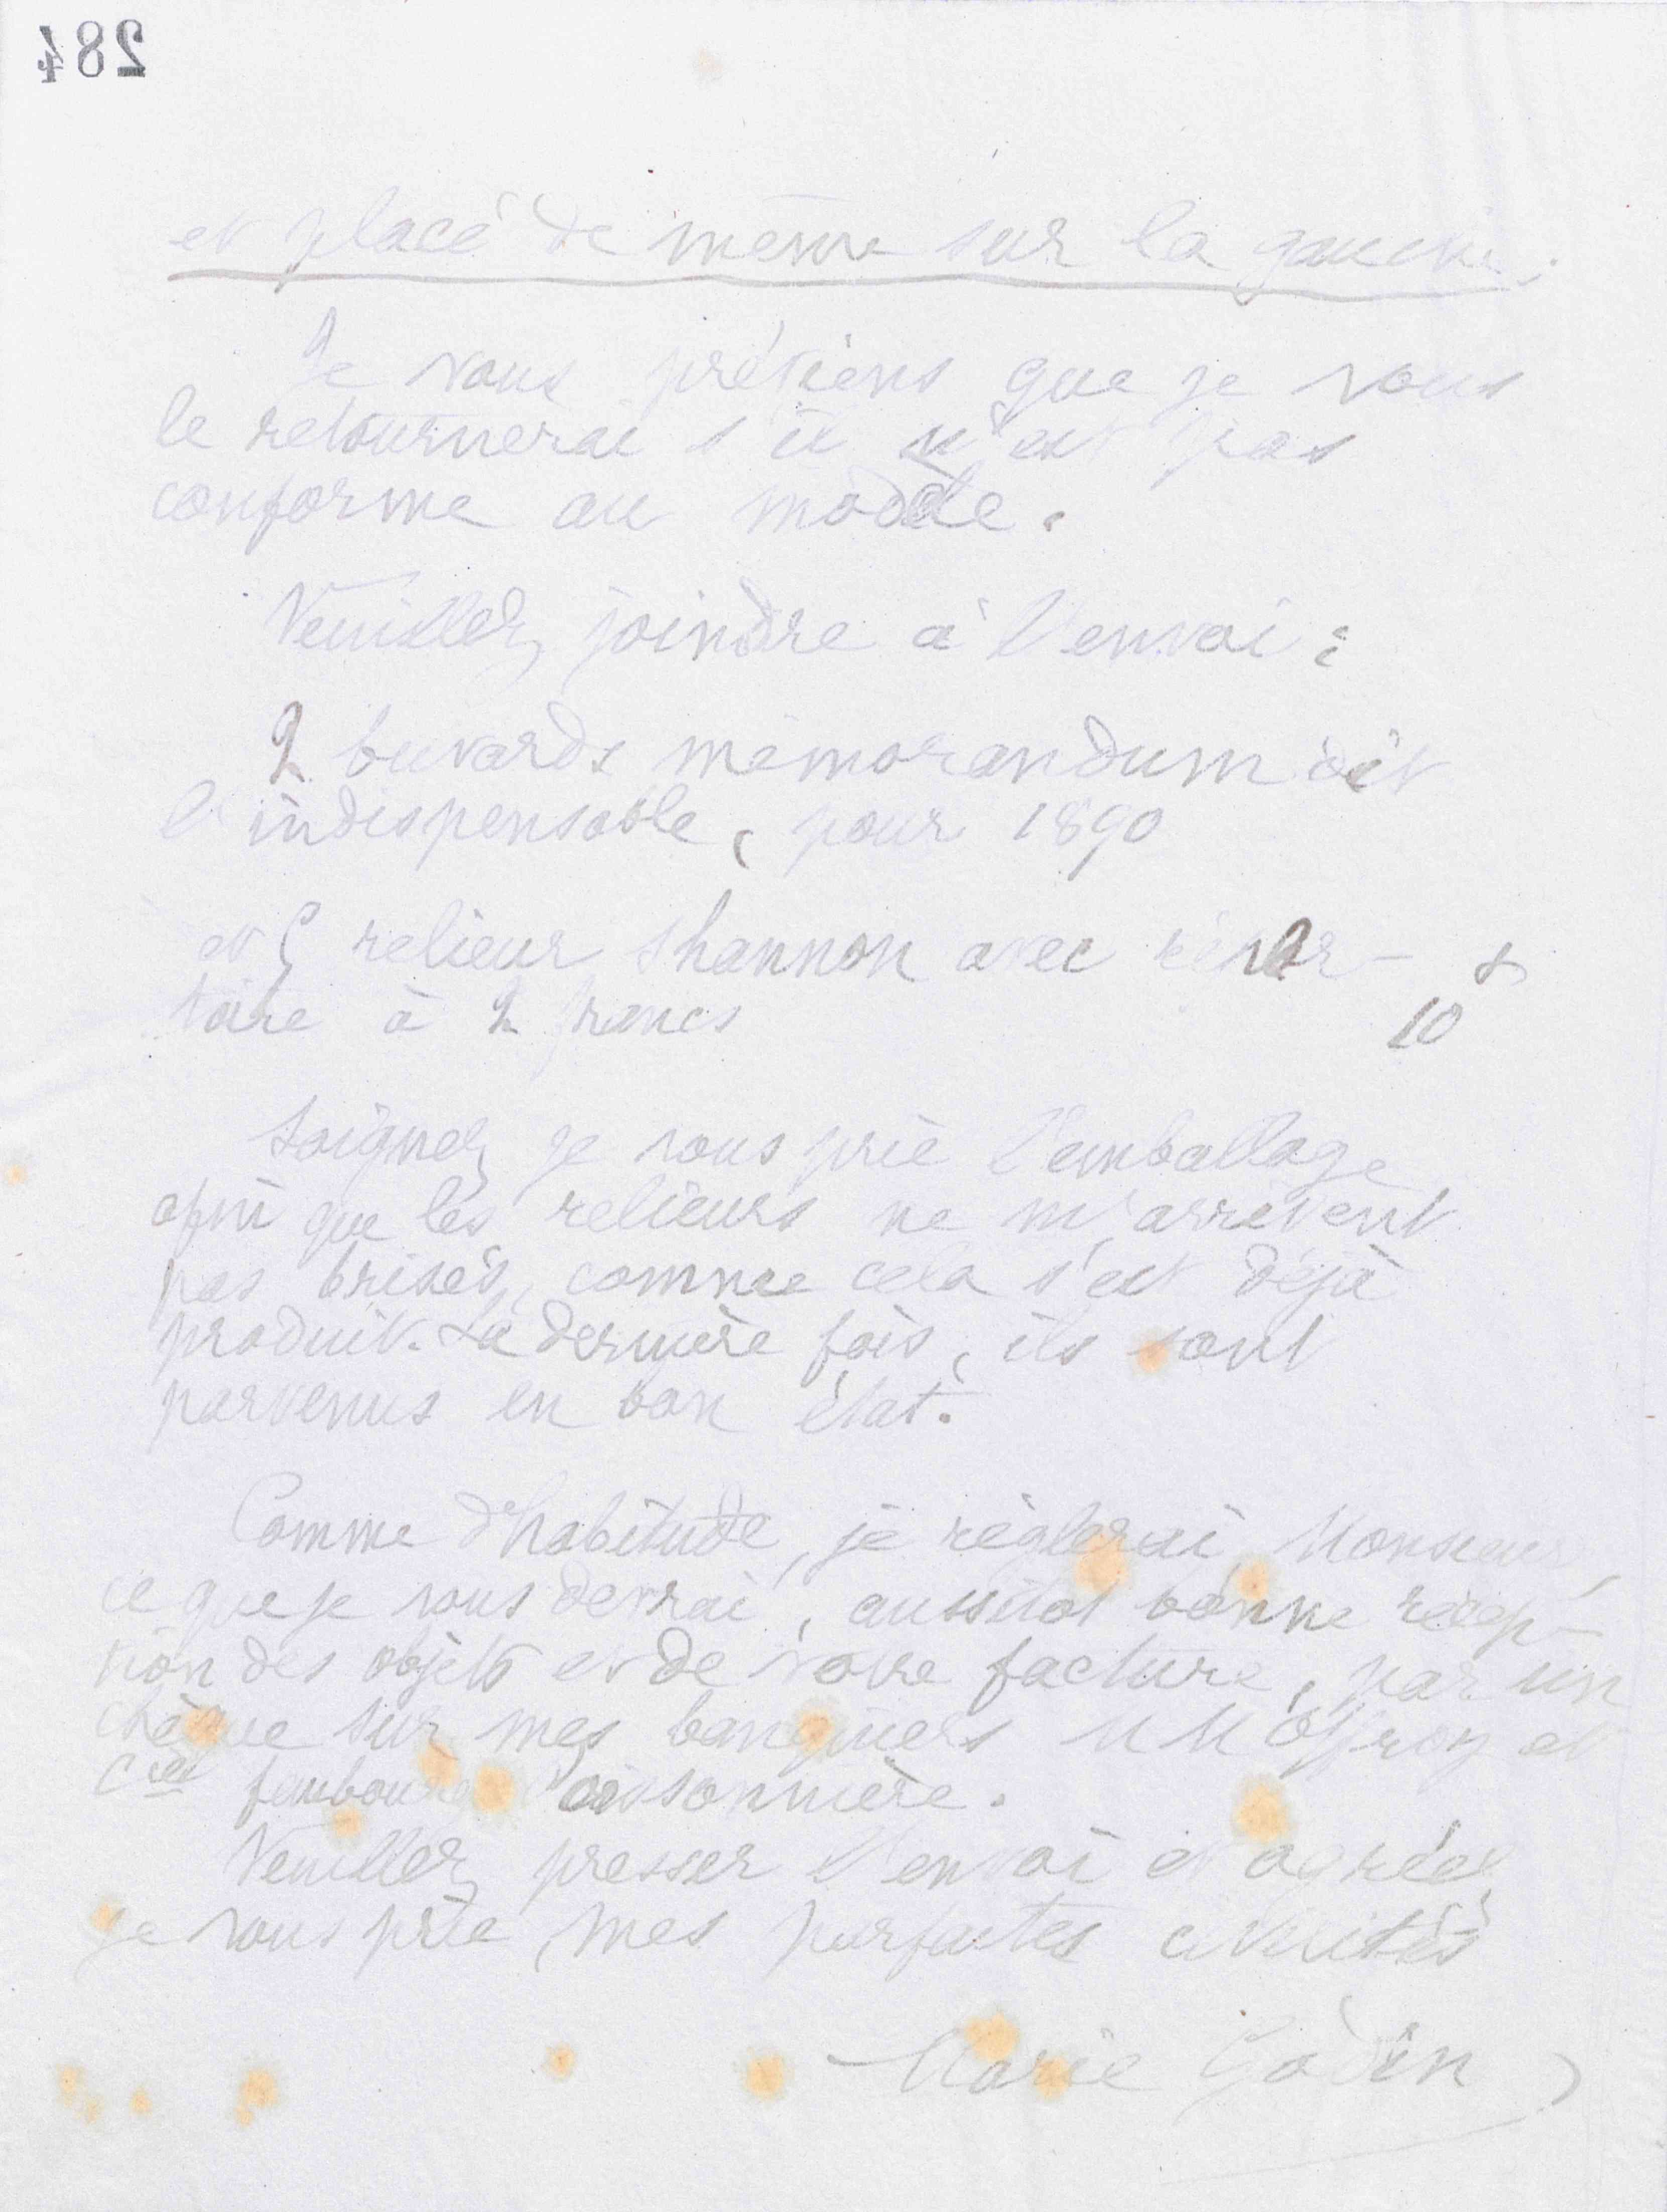 284
et placé de même sur la gauche.
Je vous préviens que je vous
le retournerai s'il n'est pas
conforme au modèle.
Veuillez joindre à l'envoi :
2 buvards mémorandum dit
l'indispensable, pour 1890
et 5 relieur Shannon avec réper-
toire à 2 francs
10
Soignez je vous prie l'emballage
afin que les relieurs ne m'arrivent
pas brisés, comme cela s'est déjà
produit. La dernière fois, ils sont
parvenus en bon état.
Comme d'habitude, je règlerai, Monsieur,
ce que je vous devrai, aussitôt bonne récep-
tion des objets et de votre facture, par un
chèque sur mes banquiers MM Offroy et
Cie faubourg Poissonnière.
Veuillez presser l'envoi et agréer
je vous prie, mes parfaites civilités
Marie Godin